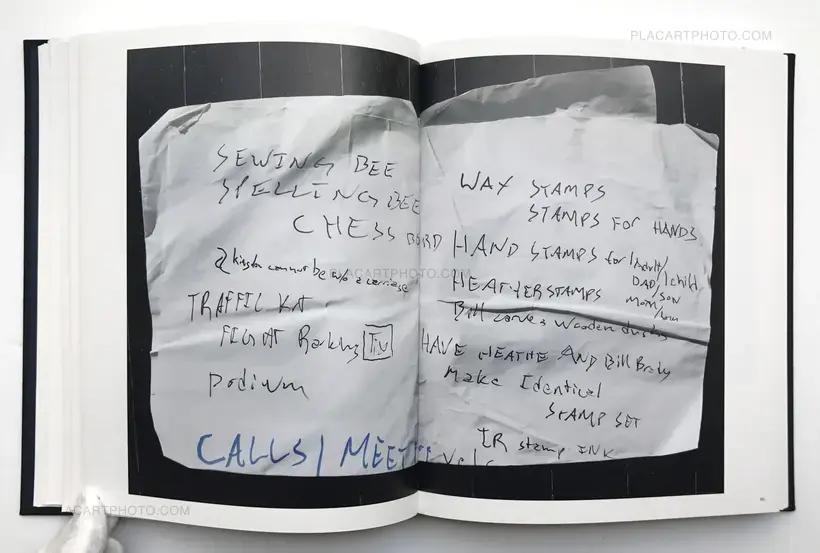 PLACARTPHOTO.COM
SEWING BEE
SPELLING BEE
CHESS BOARD
cannot be w/o a
TRAFFIC
Baking Tin
Podium
CALLS / MEET
WAX STAMPS
STAMPS FOR HANDS
HAND STAMPS for 1 adult/1 child
DAD/SON
MOM/
HEATHER STAMPS
Bill carves wooden
HAVE HEATHE AND Bill
Make Identical
STAMP SET
IR stamp INK
PLACARTPHOTO.COM
PLACARTPHOTO.COM